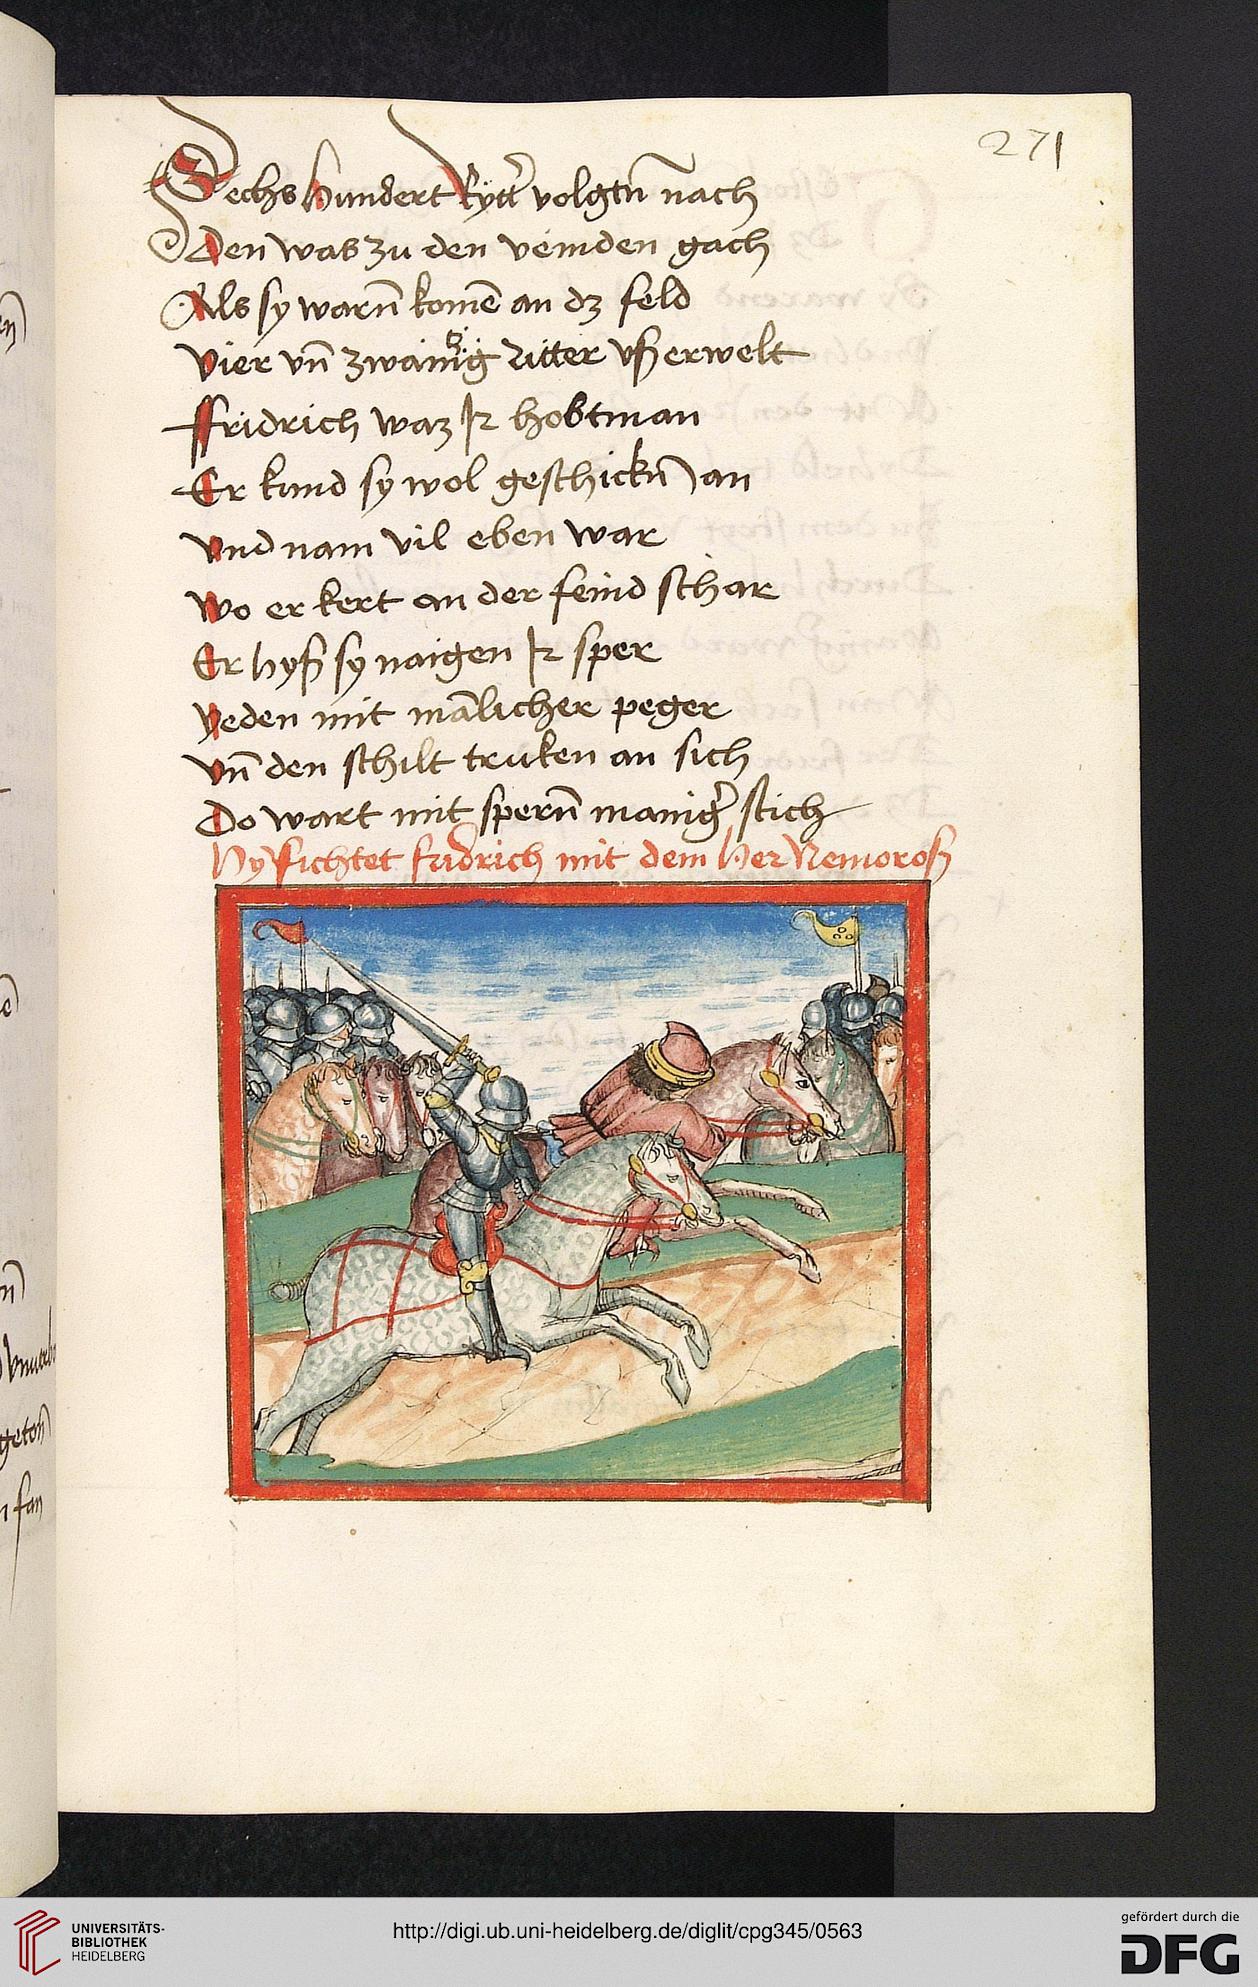 271
Sechs hundert Rytt̃ volgtn̄ nach
Den was zu den veinden gach
Als sy warn̄ komē an dz feld
Vier vn̄ zwainzig ritter vßerwelt
Fridrich waz Ir hobtman
Er kund sy wol geschickn̄ an
Vnd nam vil eben war
Wo er kert an der feind schar
Er hyß sy naigen Ir sper
Yeden mit mālicher peger
Vn̄ den schilt truken an sich
Do wart mit spern̄ manig̃ stich
Hy fichtet fridrich mit dem her Nemoroß
geton̄
UNIVERSITÄTS-
BIBLIOTHEK
HEIDELBERG
http://digi.ub.uni-heidelberg.de/diglit/cpg345/0563
gefördert durch die
DFG